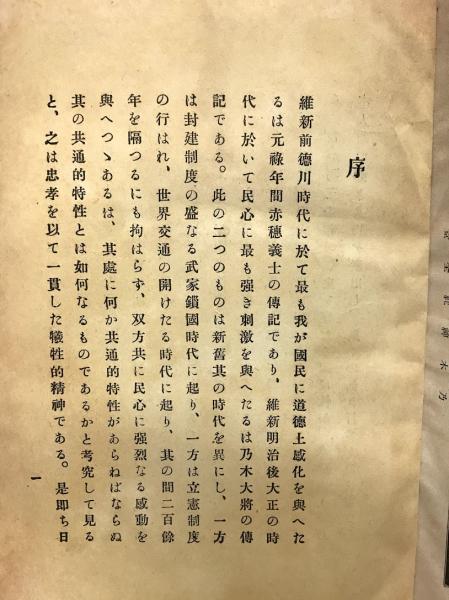 序
維新前德川時代に於て最も我が國民に道德上感化を與へた
るは元祿年間赤穗義士の傳記であり、維新明治後大正の時
代に於いて民心に最も强き刺激を與へたるは乃木大將の傳
記である。此の二つのものは新舊其の時代を異にし、一方
は封建制度の盛なる武家鎖國時代に起り、一方は立憲制度
の行はれ、世界交通の開けたる時代に起り、其の間二百餘
年を隔つるにも拘はらず、双方共に民心に强烈なる感動を
與へつゝあるは、其處に何か共通的特性があらねばならぬ
其の共通的特性とは如何なるものであるかと考究して見る
と、之は忠孝を以て一貫した犧牲的精神である。是卽ち日
一
乃木神社